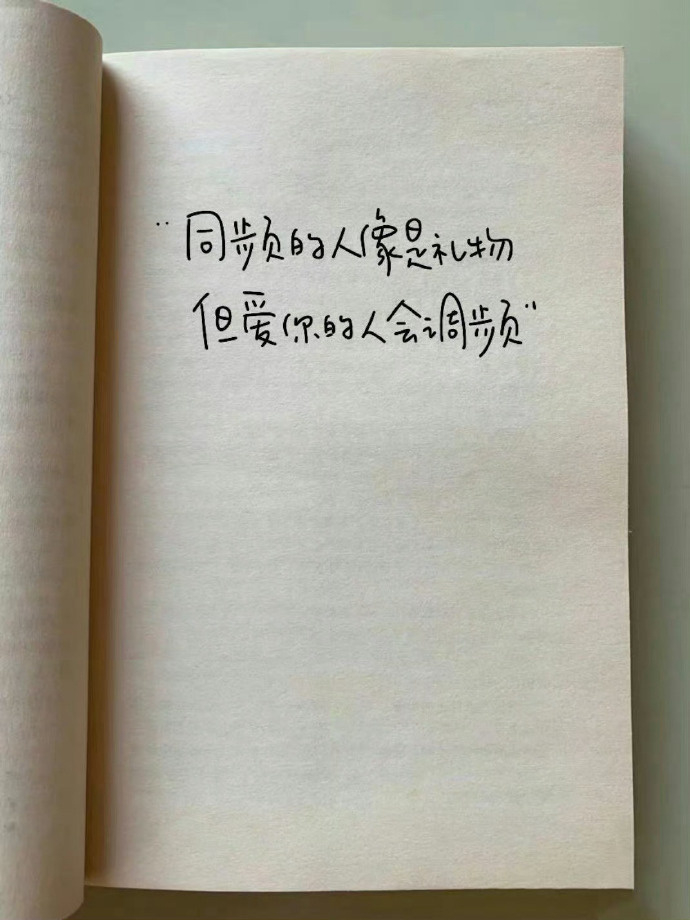 "同频的人像是礼物
但爱你的人会调频"